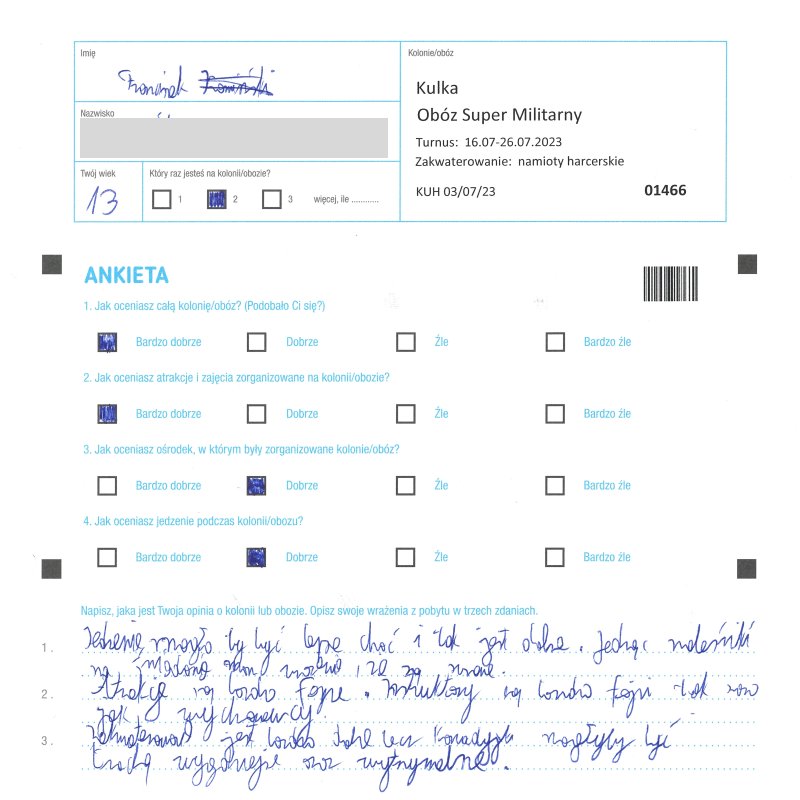 Imię
Kolonie/obóz
Franciszek
Kulka
Obóz Super Militarny
Nazwisko
Turnus: 16.07-26.07.2023
Zakwaterowanie: namioty harcerskie
Twój wiek
Który raz jesteś na kolonii/obozie?
13
1 2 3 więcej, ile ............
KUH 03/07/23 01466
ANKIETA
1. Jak oceniasz całą kolonię/obóz? (Podobało Ci się?)
Bardzo dobrze Dobrze Źle Bardzo źle
2. Jak oceniasz atrakcje i zajęcia zorganizowane na kolonii/obozie?
Bardzo dobrze Dobrze Źle Bardzo źle
3. Jak oceniasz ośrodek, w którym były zorganizowane kolonie/obóz?
Bardzo dobrze Dobrze Źle Bardzo źle
4. Jak oceniasz jedzenie podczas kolonii/obozu?
Bardzo dobrze Dobrze Źle Bardzo źle
Napisz, jaka jest Twoja opinia o kolonii lub obozie. Opisz swoje wrażenia z pobytu w trzech zdaniach.
1. Jedzenie mogło by być lepsze choć i tak jest dobre. Jedząc naleśniki
na śniadanie mam wrażenie, że są
2. Atrakcje są bardzo fajne. Instruktorzy są bardzo fajni tak samo
jak wychowawcy.
3. jest bardzo dobre lecz mogłyby być
trochę wygodniejsze oraz